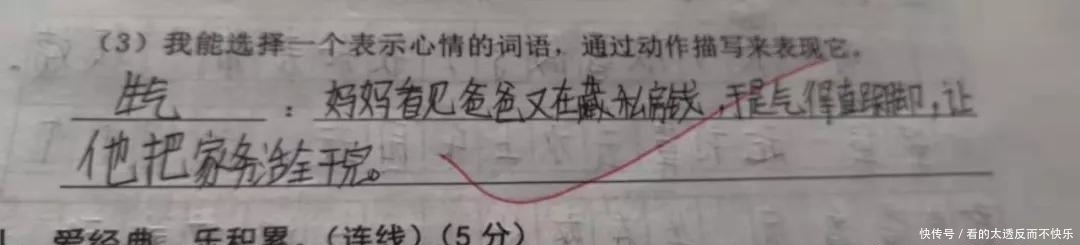 （3）我能选择一个表示心情的词语，通过动作描写来表现它。
生气：妈妈看见爸爸又在藏私房钱，于是气得直跺脚，让
他把家务活全干完。
爱经典，乐积累。（连线）（5分）
快传号/看的太透反而不快乐